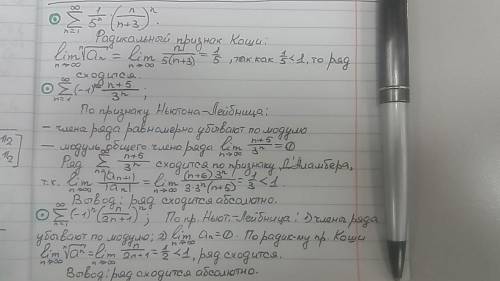 ∑_{n=1}^{∞} 1/5ⁿ (n/(n+3))ⁿ.
Радикальной признак Коши:
lim_{n→∞} ⁿ√aₙ = lim_{n→∞} n/(5(n+3)) = 1/5, так как 1/5<1, то ряд
сходится
∑_{n=1}^{∞} (-1)ⁿ (n+5)/3ⁿ;
По признаку Ньютона-Лейбница:
— члена ряда равномерно убывают по модулю
— модуль общего члена ряда lim_{n→∞} (n+5)/3ⁿ = 0
Ряд ∑_{n=1}^{∞} (n+5)/3ⁿ сходится по признаку Д'Аламбера,
т.к. lim_{n→∞} |aₙ₊₁|/|aₙ| = lim_{n→∞} (n+6)3ⁿ/(3·3ⁿ(n+5)) = 1/3 < 1.
Вывод: ряд сходится абсолютно.
∑_{n=1}^{∞} (-1)ⁿ (n/(2n+1))ⁿ; По пр. Ньют.-Лейбница: 1) члена ряда
убывают по модулю; 2) lim_{n→∞} aₙ = 0. По радик-му пр. Коши
lim_{n→∞} ⁿ√aⁿ = lim_{n→∞} n/(2n+1) = 1/2 < 1, ряд сходится.
Вывод: ряд сходится абсолютно.
π/2
π/2